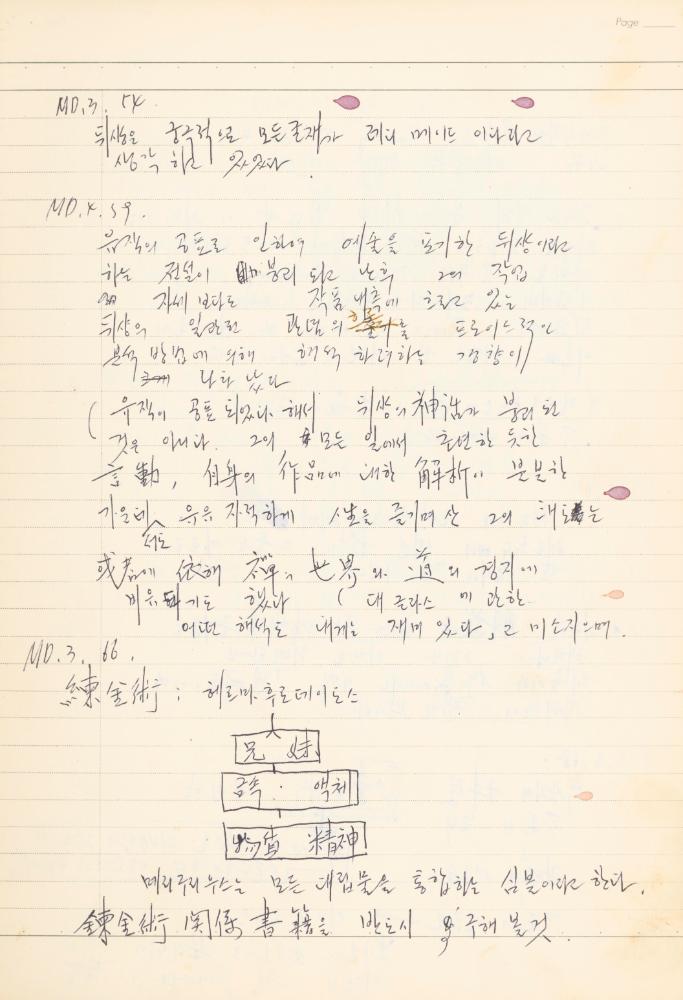 Page
MD. 3. 54
뒤샹은 궁극적으로 모든 존재가 레디 메이드 이다라고
생각 하고 있었다.
MD. 4. 59.
유작의 공표로 인하여 예술을 포기한 뒤샹이라고
하는 전설이 붕괴 되고 난후 그의 작업
자세 보다도 작품 내측에 흐르고 있는
뒤샹의 일관된 관념의 를 프로이드적인
분석 방법에 의해 해석 하려하는 경향이
나타 났다
( 유작이 공표 되었다 해서 뒤샹의 神話가 붕괴 된
것은 아니다. 그의 모든 일에서 초연한 듯한
言動, 自身의 作品에 대한 解析이 분분한
가운데서도 유유 자적하게 人生을 즐기며 산 그의 태도는
或者에 依해 禪의 世界와 道의 경지에
비유되기도 했다 ( 대 글라스에 관한
어떤 해석도 내게는 재미 있다, 고 미소지으며.
MD. 3. 66.
鍊金術 : 헤르마 후로데이토스
兄 妹
금속 · 액체
物質 精神
메리쿠리우스는 모든 대립물을 통합하는 심볼이라고 한다.
鍊金術 関係 書籍을 반드시 구해 볼 것.